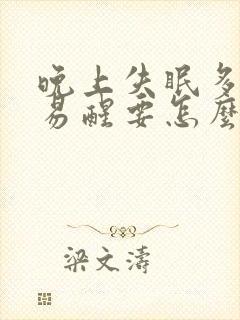 晚上失眠多
易醒要怎麼
梁文濤